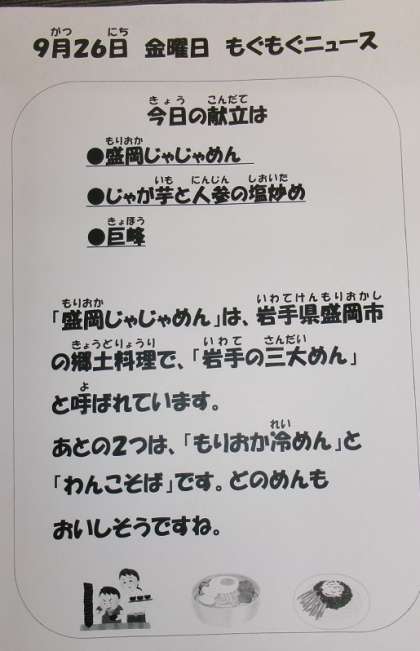 9月26日 金曜日 もぐもぐニュース
今日の献立は
●盛岡じゃじゃめん
●じゃが芋と人参の塩炒め
●巨峰
「盛岡じゃじゃめん」は、岩手県盛岡市
の郷土料理で、「岩手の三大めん」
と呼ばれています。
あとの2つは、「もりおか冷めん」と
「わんこそば」です。どのめんも
おいしそうですね。